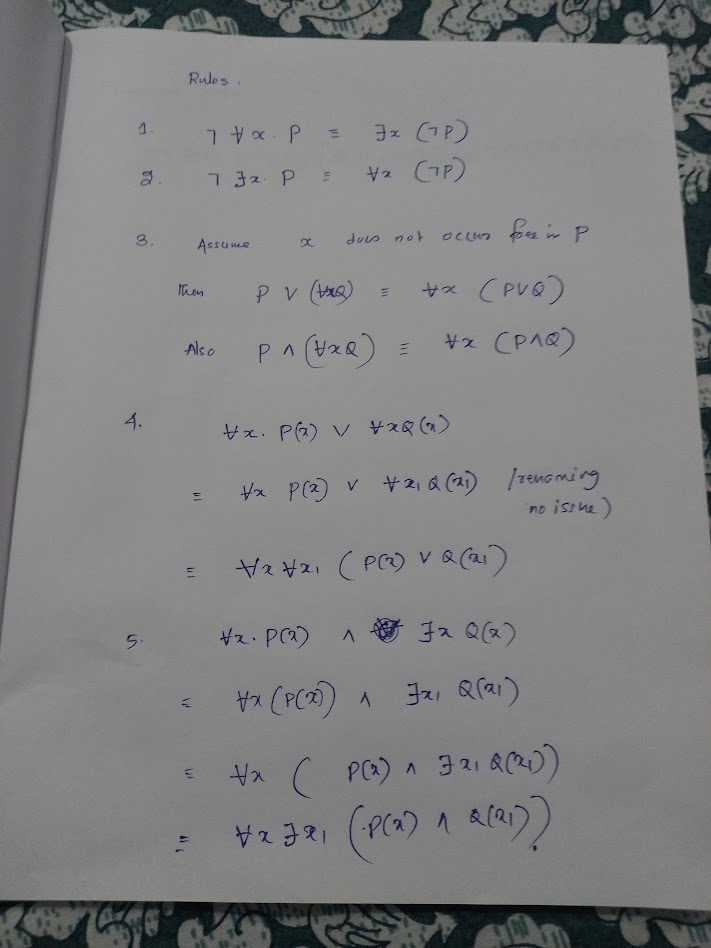 Rules.
1. ¬ ∀x. P ≡ ∃x (¬P)
2. ¬ ∃x. P ≡ ∀x (¬P)
3. Assume x does not occur free in P
Then P ∨ (∀xQ) ≡ ∀x (P∨Q)
Also P ∧ (∀xQ) ≡ ∀x (P∧Q)
4. ∀x. P(x) ∨ ∀xQ(x)
≡ ∀x P(x) ∨ ∀x₁ Q(x₁) (renaming
no issue)
≡ ∀x ∀x₁ (P(x) ∨ Q(x₁))
5. ∀x. P(x) ∧ ∃x Q(x)
≡ ∀x (P(x)) ∧ ∃x₁ Q(x₁)
≡ ∀x ( P(x) ∧ ∃x₁ Q(x₁))
≡ ∀x ∃x₁ (P(x) ∧ Q(x₁)).